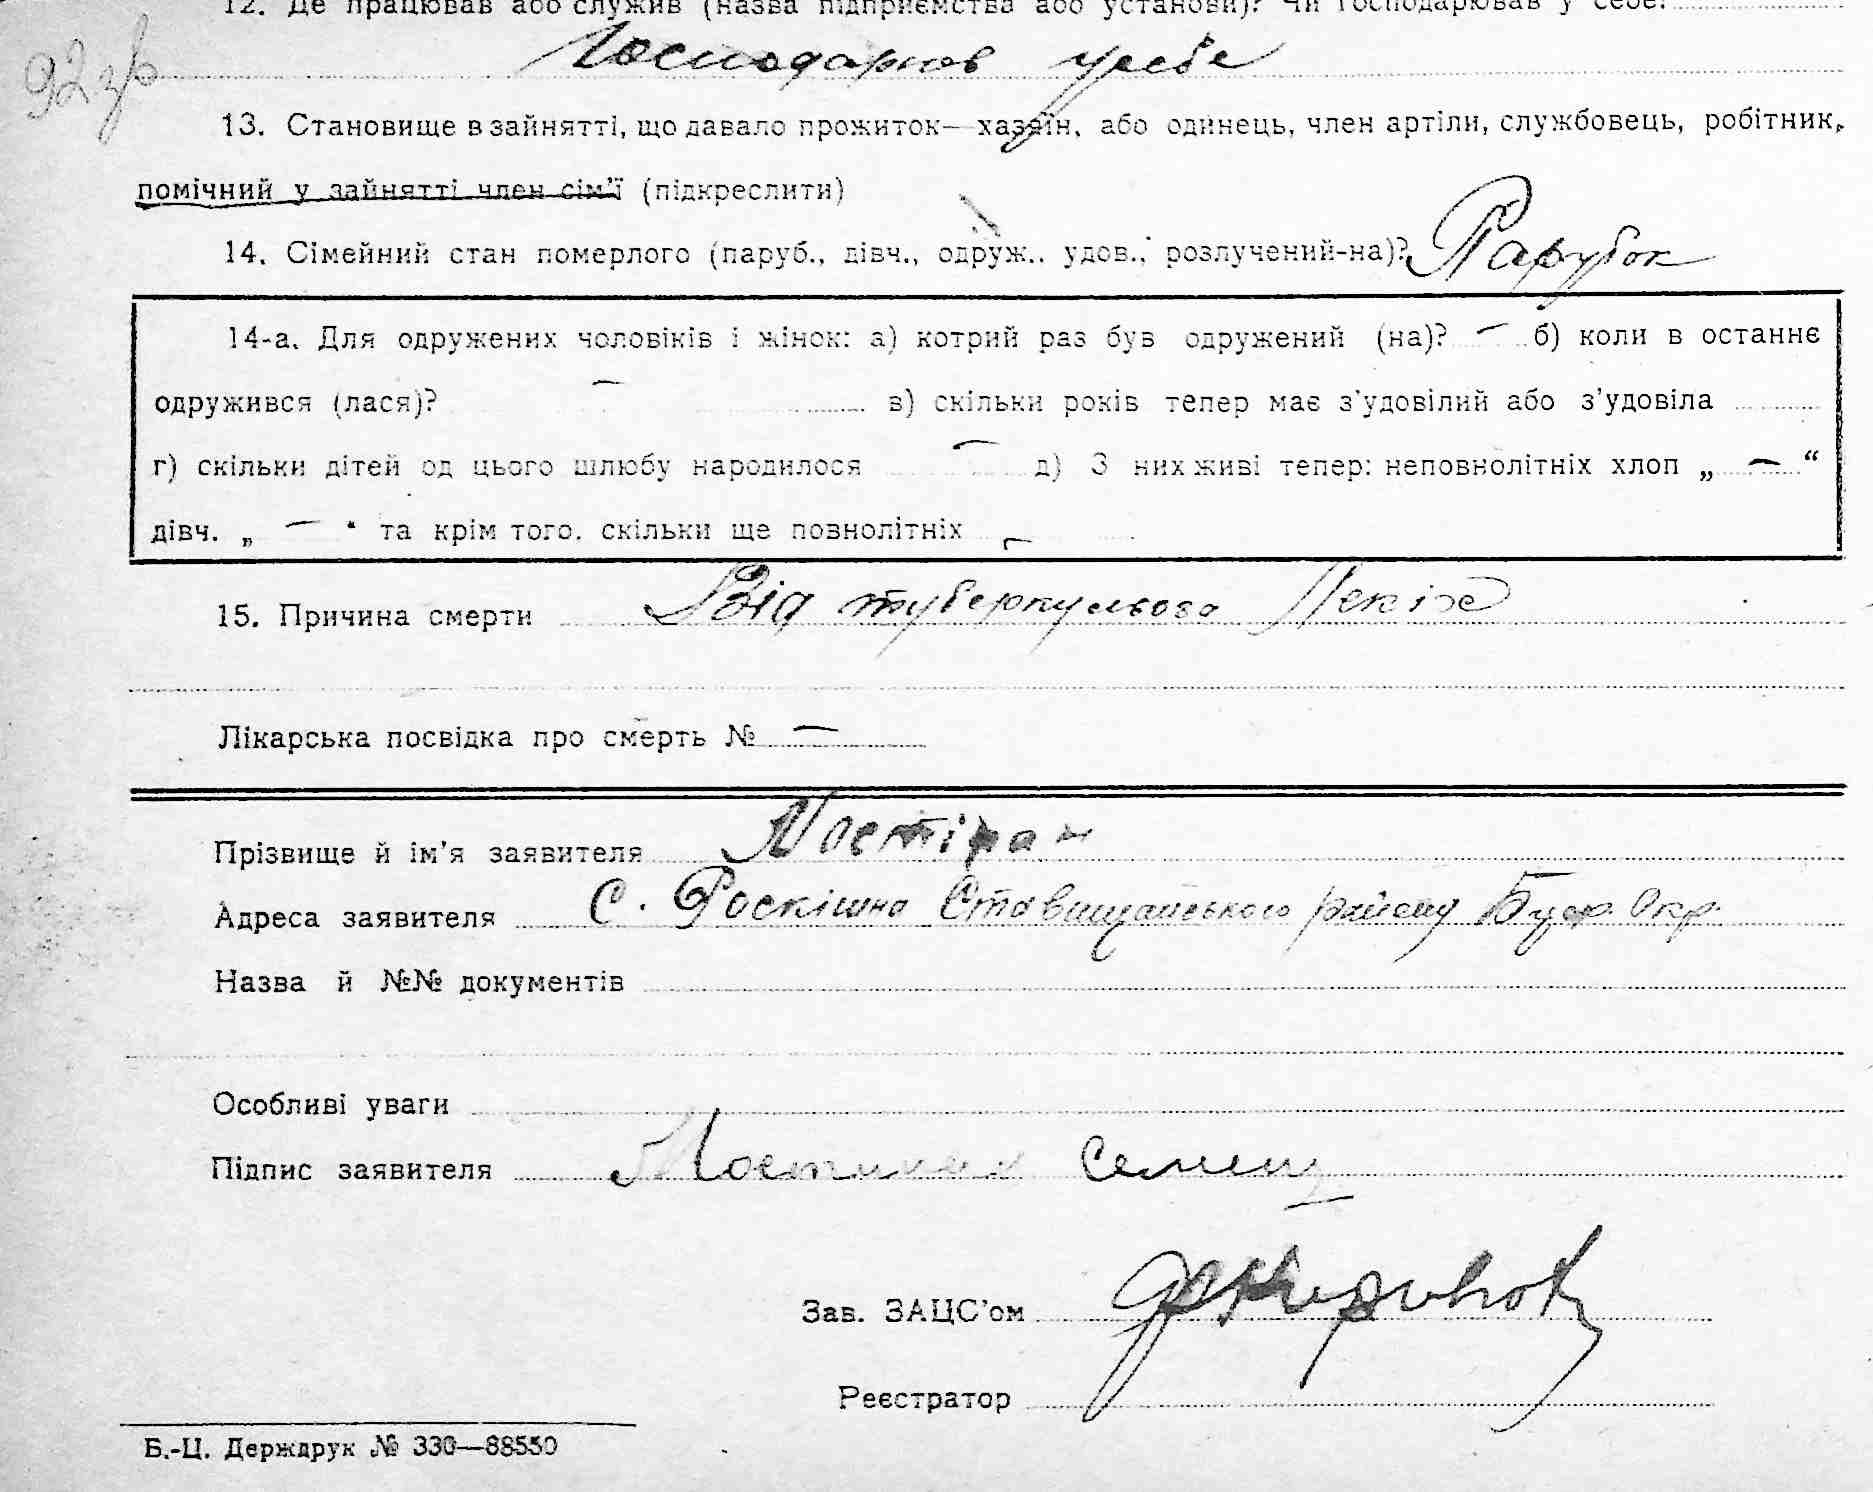 12. Де працював або служив (назва підприємства або установи)? Чи господарював у себе?
Господарював у себе
92 зр
13. Становище в зайнятті, що давало прожиток—хазяїн, або одинець, член артіли, службовець, робітник,
помічний у зайнятті член сім'ї (підкреслити)
14. Сімейний стан померлого (паруб., дівч., одруж.. удов., розлучений-на)? Парубок
14-а. Для одружених чоловіків і жінок: а) котрий раз був одружений (на)? — б) коли в останнє
одружився (лася)? — в) скільки років тепер має з'удовілий або з'удовіла
г) скільки дітей од цього шлюбу народилося — д) З них живі тепер: неповнолітніх хлоп „ — “
дівч. „ — “ та крім того. скільки ще повнолітніх —
15. Причина смерти Від туберкульоза Лекіх
Лікарська посвідка про смерть № —
Прізвище й ім'я заявителя
Адреса заявителя С. Роскішна Ставищанського району Буцр. Окр.
Назва й №№ документів
Особливі уваги
Підпис заявителя Семен
Зав. ЗАЦС'ом
Реєстратор
Б.-Ц. Держдрук № 330—88550